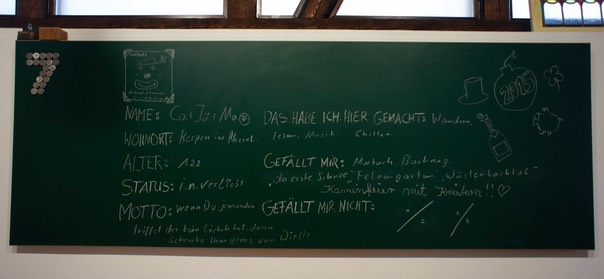 7
2015
NAME: CatJayMa
DAS HABE ICH HIER GEMACHT: Wandern,
WOHNORT: Kerpen im Rheinl.
lesen, Musik, Chillen...
ALTER: 122
GEFÄLLT MIR: Marbach, Backnang,
"der erste Schnee", Felsengarten, Wüstenbachtal -
STATUS: i.n. verliebt
Kaminfeuer mit Knistern!! ♡
MOTTO: wenn Du jemanden
GEFÄLLT MIR NICHT: %  %
triffst der kein Lächeln hat, dann
schenke ihm eines von Dir!!